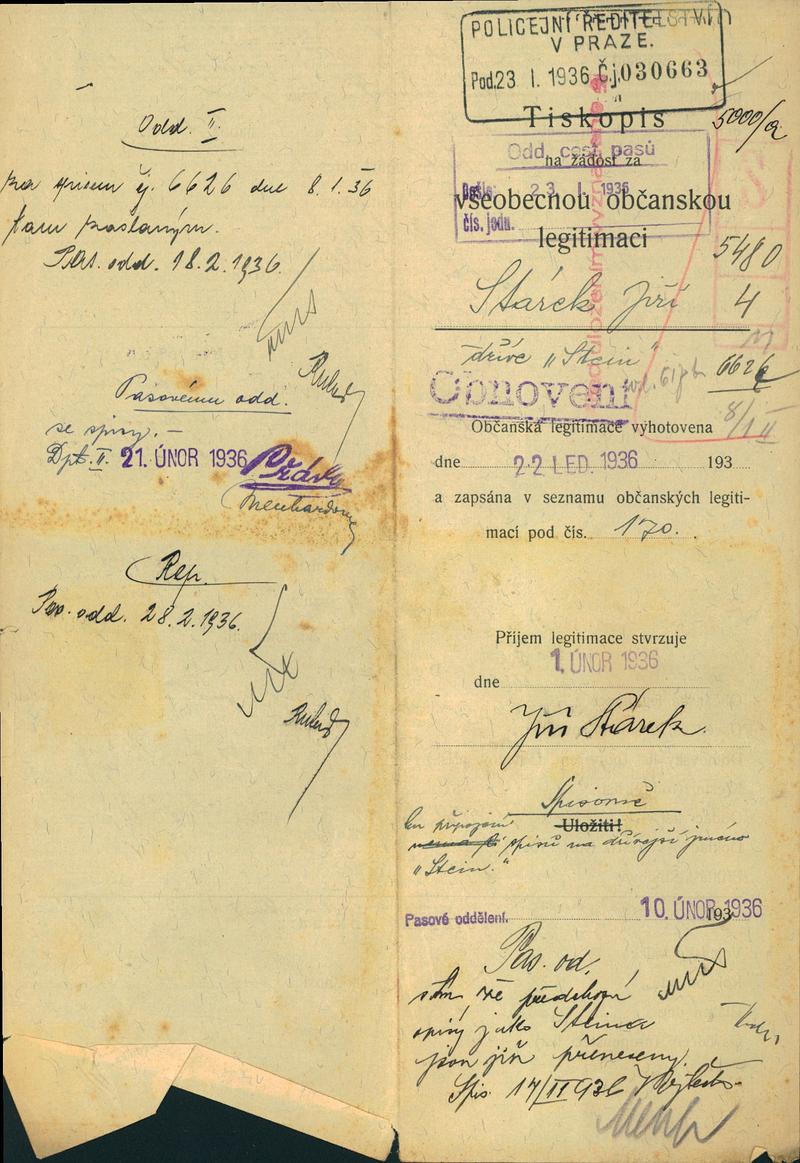 Odd. II.
ku spisům čj. 6626 dne 8.1.36
tam zaslaným.
odd. 18.2.1936.
Pasovému odd.
se spisy.-
Dpt. II. 21. ÚNOR 1936
Rep.
Pas. odd. 28.2.1936.
POLICEJNÍ ŘEDITELSTVÍ
V PRAZE.
Pod. 23 I. 1936 Č.j. 030663
Tiskopis
5000/a
Odd. cest. pasů
na žádost za
Došlo: 23. I. 1936
všeobecnou občanskou
čís. jedn.
legitimaci
5480
Stárek Jiří
4
dříve „Stein"
6626
Obnovení
8/I II
Občanská legitimace vyhotovena
dne 22 LED. 1936 193
a zapsána v seznamu občanských legiti-
mací pod čís. 170.
Příjem legitimace stvrzuje
1. ÚNOR 1936
dne
Jiří Stárek
Spisovně
Uložiti!
připojení
spisů na dřívější jméno
„Stein."
Pasové oddělení. 10. ÚNOR 1936 193
Pas. od.
že předchozí
spisy jako Steina
jsou již přeneseny.
Spis. 17/II 936